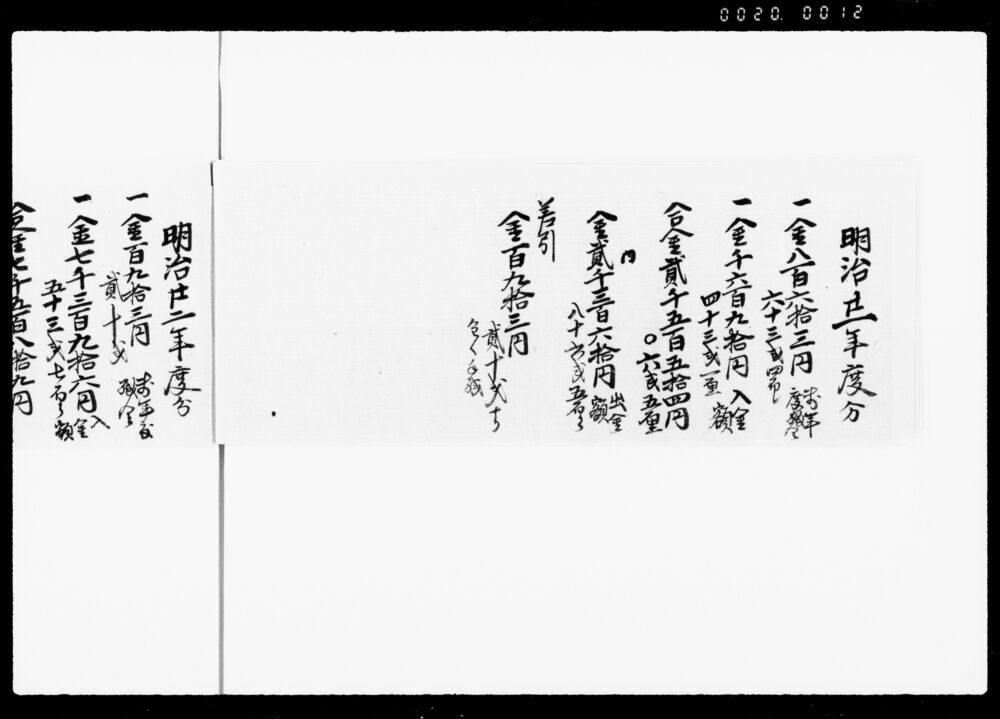 0020. 0012
明治廿一年度分
一金八百六拾三円
六十三戋四
一金千六百九拾円 入金額
四十三戋一厘
合金貳千五百五拾四円
〇六戋五厘
内
金貳千三百六拾円 出金額
八十六戋五
差引
金百九拾三円
貳十戋
明治廿二年度分
一金百九拾三円
貳十戋
一金七千三百九拾六円 入金額
五十三戋七
合金七千五百八拾九円